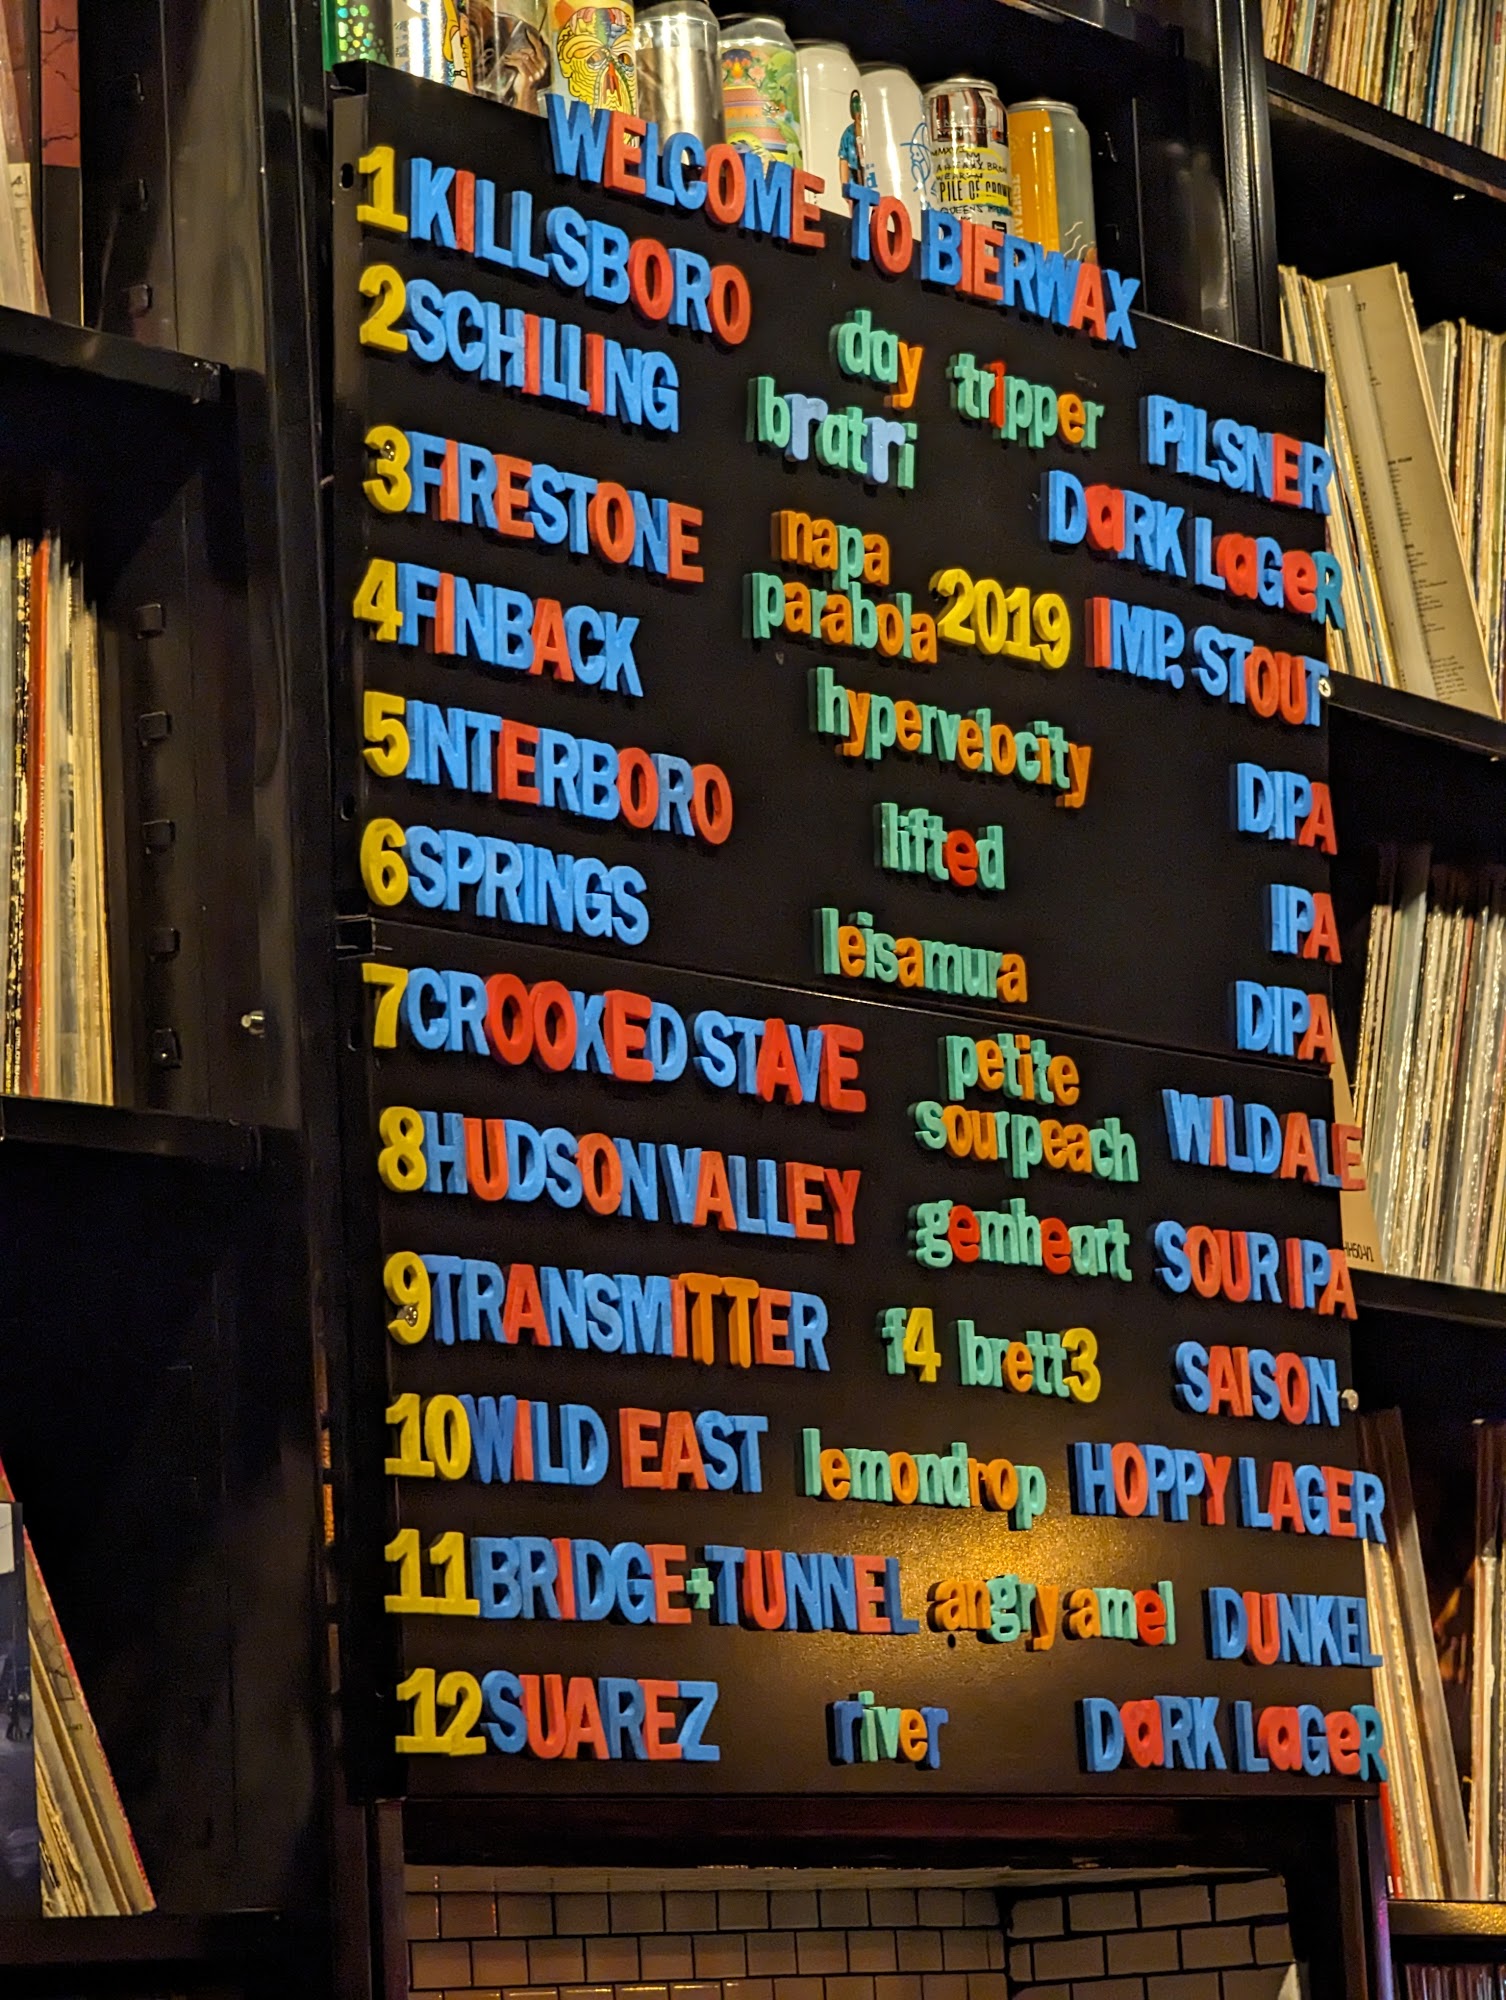 WELCOME TO BIERWAX
1 KILLSBORO day tripper PILSNER
2 SCHILLING bratri DARK LAGER
3 FIRESTONE napa parabola 2019 IMP. STOUT
4 FINBACK hypervelocity DIPA
5 INTERBORO lifted IPA
6 SPRINGS leisamura DIPA
7 CROOKED STAVE petite sour peach WILD ALE
8 HUDSON VALLEY gemheart SOUR IPA
9 TRANSMITTER f4 brett3 SAISON
10 WILD EAST lemondrop HOPPY LAGER
11 BRIDGE+TUNNEL angry amel DUNKEL
12 SUAREZ river DARK LAGER
PILE OF
QUEENS